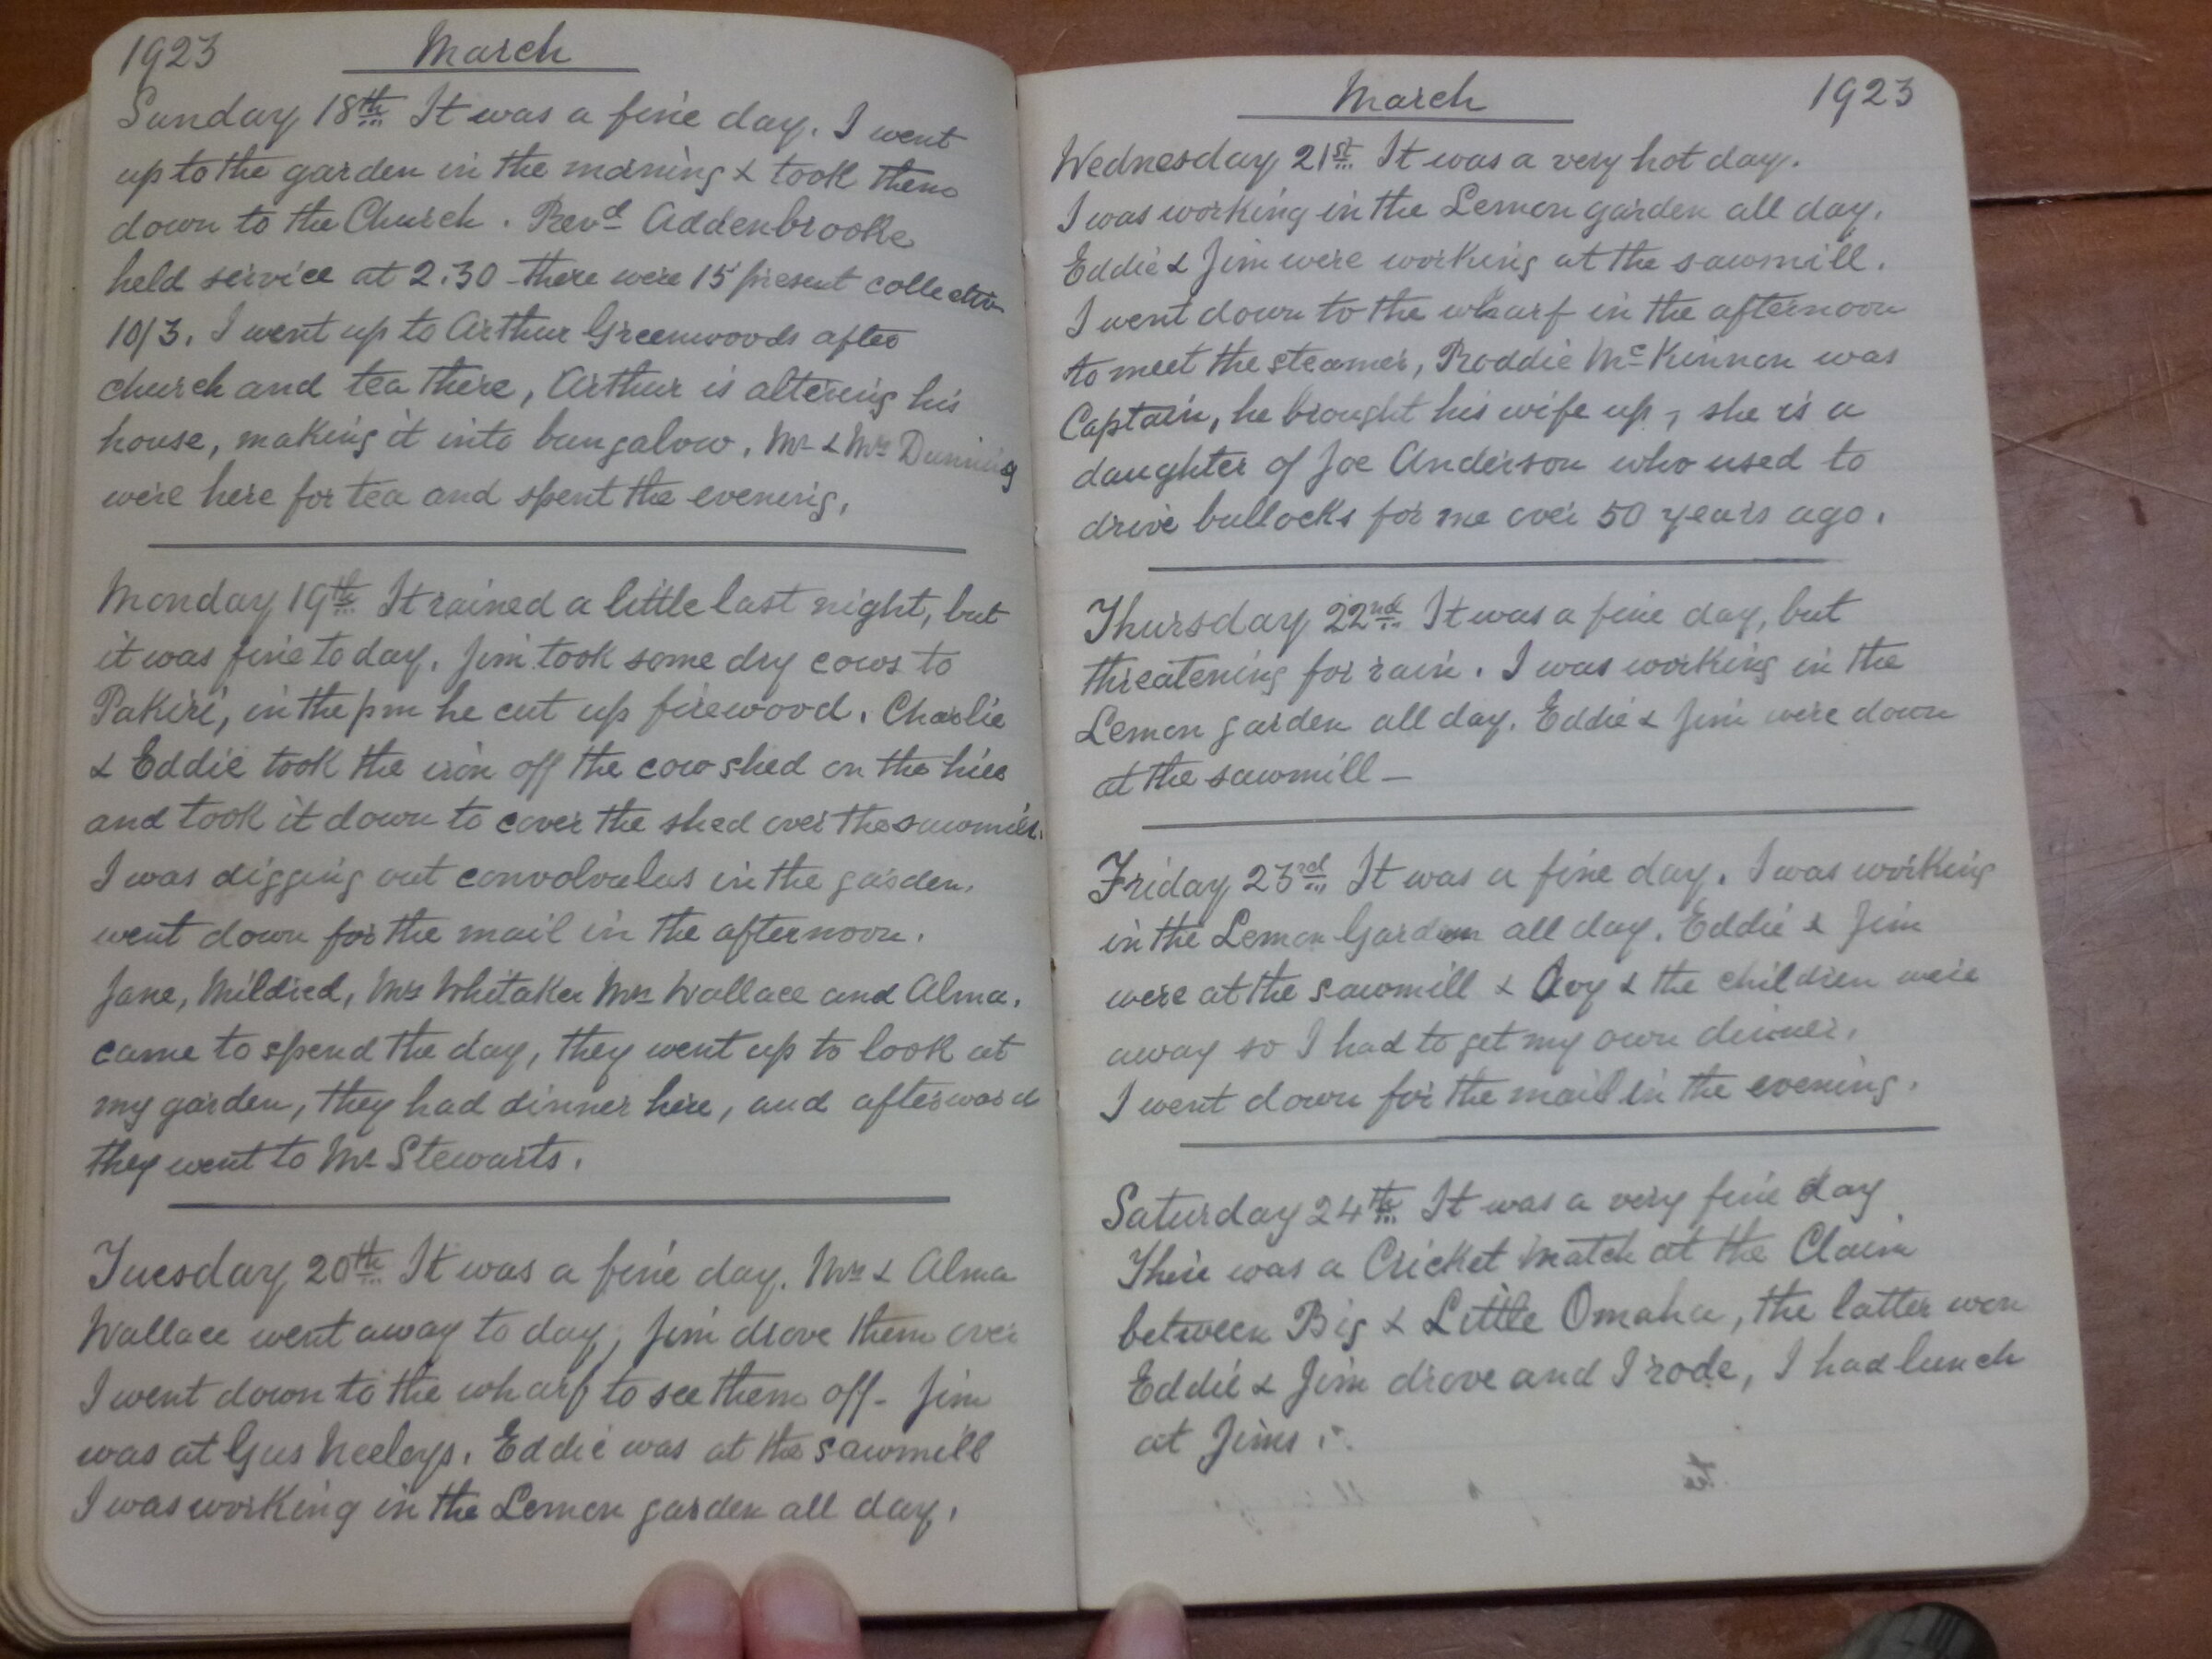 1923 March
Sunday 18th It was a fine day. I went
up to the garden in the morning & took them
down to the Church. Revd Addenbrooke
held service at 2.30 there were 15 present collection
10/3. I went up to Arthur Greenwoods after
church and tea there, Arthur is altering his
house, making it into bungalow. Mr & Mrs Dunning
were here for tea and spent the evening.
Monday 19th It rained a little last night, but
it was fine to day. Jim took some dry cows to
Pakiri, in the pm he cut up firewood. Charlie
& Eddie took the iron off the cow shed on the hill
and took it down to cover the shed over the sawmill.
I was digging out convolvulus in the garden.
went down for the mail in the afternoon.
Jane, Mildred, Mrs Whitaker Mrs Wallace and Alma.
came to spend the day, they went up to look at
my garden, they had dinner here, and afterward
they went to Mr Stewarts.
Tuesday 20th It was a fine day. Mrs & Alma
Wallace went away to day, Jim drove them over
I went down to the wharf to see them off - Jim
was at Gus Neeleys. Eddie was at the sawmill
I was working in the Lemon garden all day.
March 1923
Wednesday 21st It was a very hot day.
I was working in the Lemon garden all day.
Eddie & Jim were working at the sawmill.
I went down to the wharf in the afternoon
to meet the steamer, Roddie McKinnon was
Captain, he brought his wife up, she is a
daughter of Joe Anderson who used to
drive bullocks for me over 50 years ago.
Thursday 22nd It was a fine day, but
threatening for rain. I was working in the
Lemon garden all day. Eddie & Jim were down
at the sawmill —
Friday 23rd It was a fine day. I was working
in the Lemon Garden all day. Eddie & Jim
were at the sawmill & & the children were
away so I had to get my own dinner.
I went down for the mail in the evening.
Saturday 24th It was a very fine day
There was a Cricket match at the Claim
between Big & Little Omaha, the latter won
Eddie & Jim drove and I rode, I had lunch
at Jims.